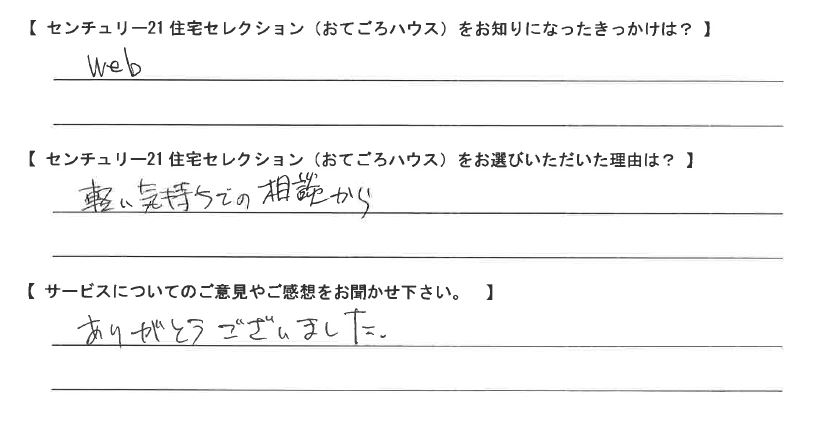 【 センチュリー21 住宅セレクション（おてごろハウス）をお知りになったきっかけは？ 】
web
【 センチュリー21 住宅セレクション（おてごろハウス）をお選びいただいた理由は？ 】
軽い気持ちでの相談から
【 サービスについてのご意見やご感想をお聞かせ下さい。 】
ありがとうございました.